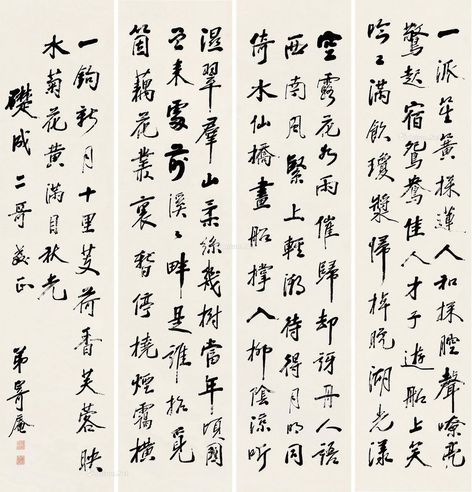 一派笙簧採蓮人和採腔聲嘹亮
驚起宿鴛鴦佳人才子遊船上笑
吟吟滿飲瓊漿歸棹晚湖光漾
空露花如雨催歸却訝丹人語
西南風緊上輕潮待得月明同
倚水仙橋畫船撐入柳陰涼听
濕翠羣山柔絲幾樹當年頃國
来處前溪溪畔是誰招覓
箇藕花叢裏暫停橈煙靄橫
一鉤新月十里芰荷香芙蓉映
水菊花黃滿目秋光
礎成二哥正
弟庵